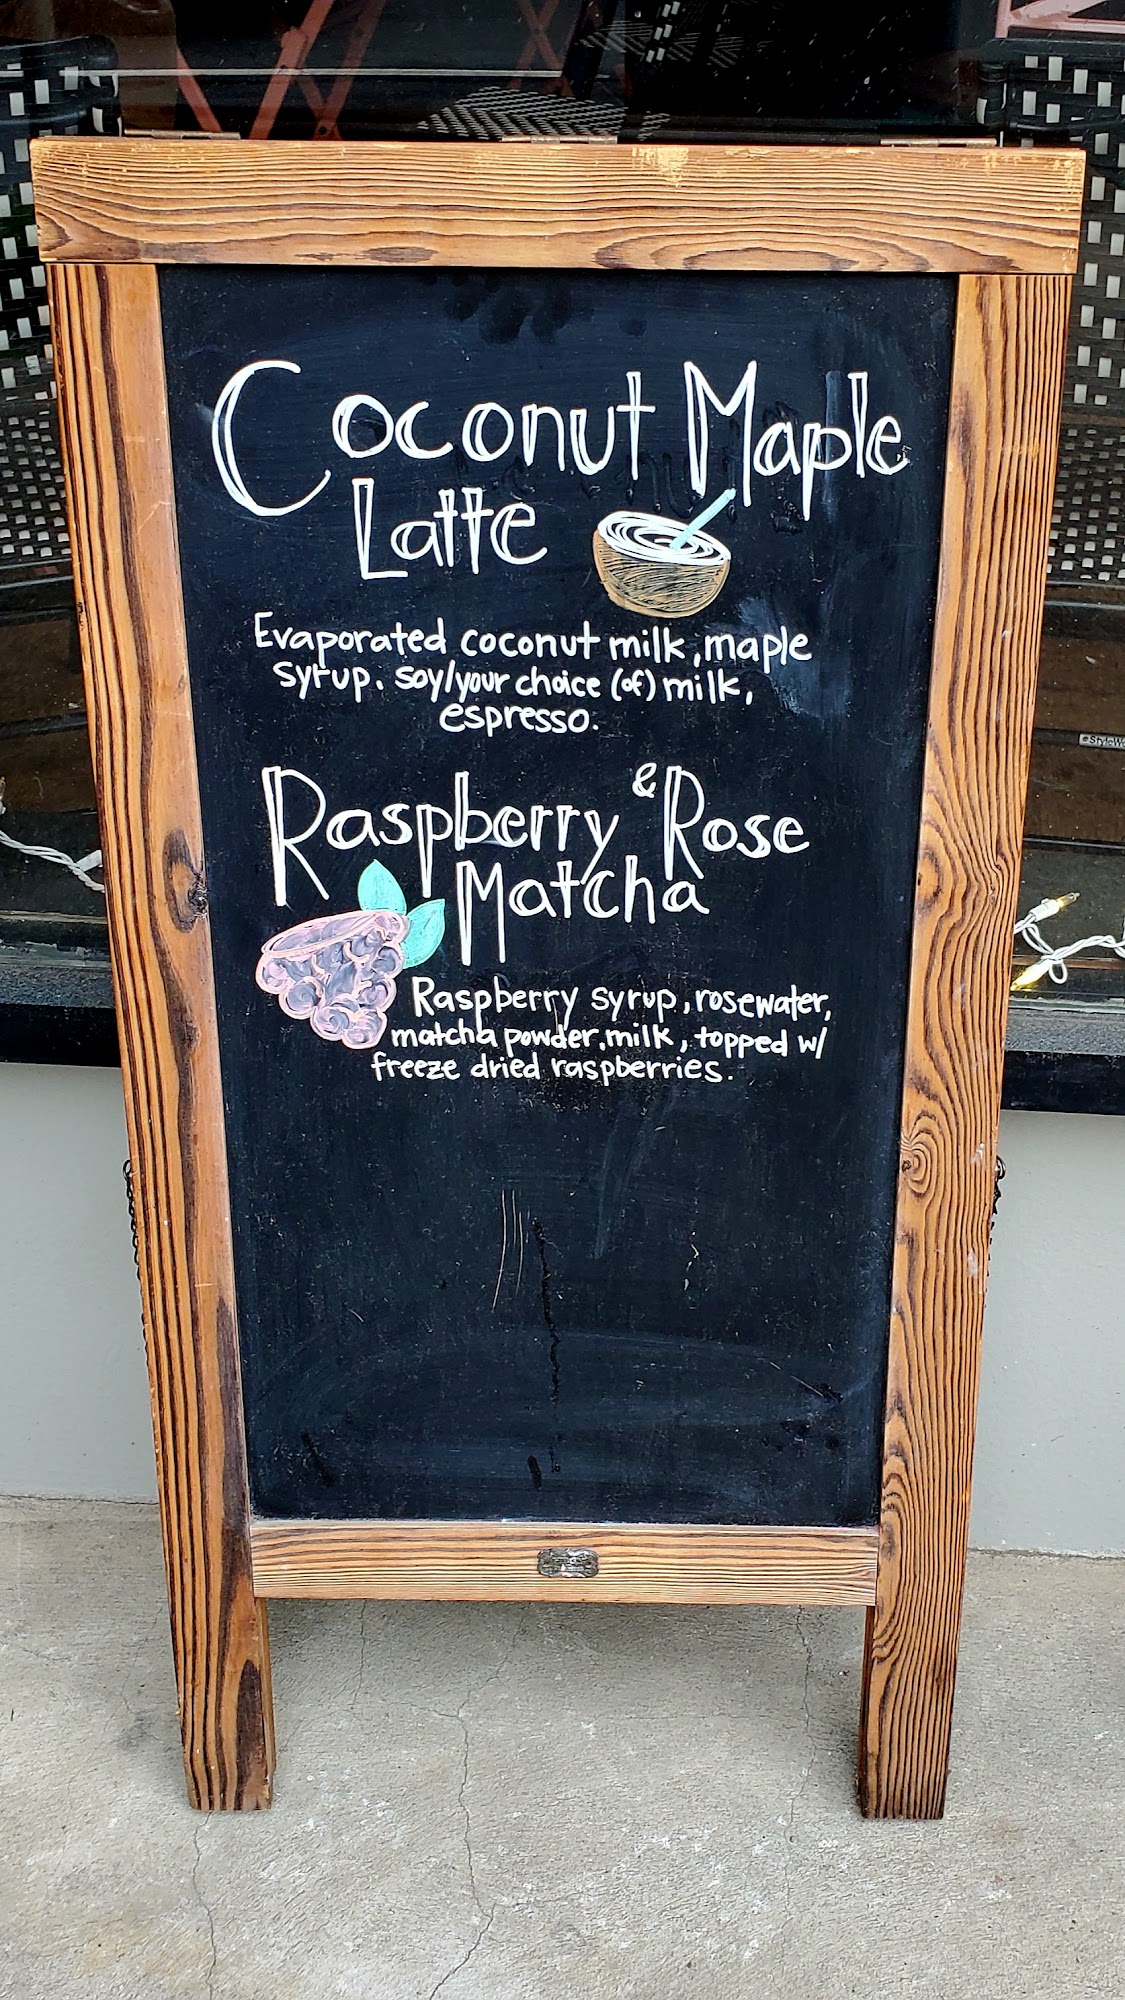 Coconut Maple
Latte
Evaporated coconut milk, maple
syrup. soy/your choice (of) milk,
espresso.
Raspberry & Rose
Matcha
Raspberry syrup, rosewater,
matcha powder, milk, topped w/
freeze dried raspberries.